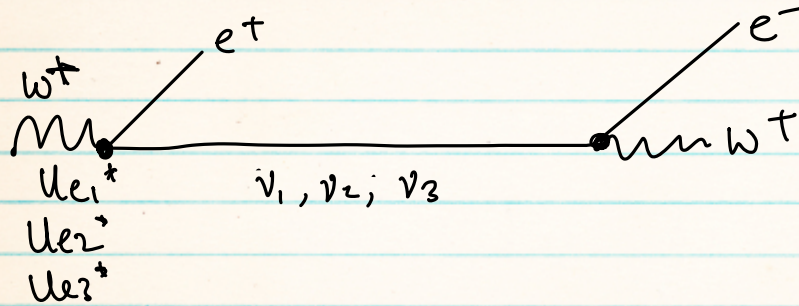 e⁺
e⁻
W⁺
W⁺
Ue1*
ν1, ν2, ν3
Ue2*
Ue3*